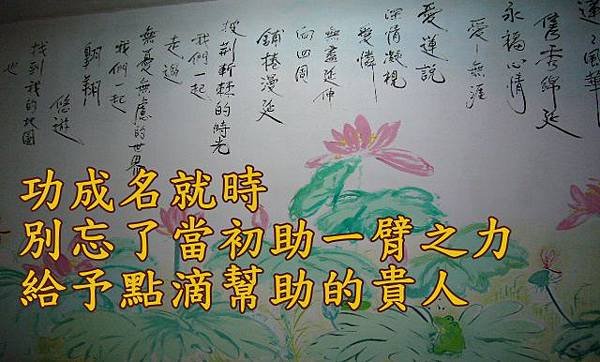 風華
秀綿延
永福心情
愛—無涯
愛蓮說
深情凝視
愛憐
無盡延伸
向四周
鋪捲漫延
披荊斬棘的時光
我們一起
走過
無憂無慮的世界
我們一起
翱翔
悠遊
找到我的地圖
也
功成名就時
別忘了當初助一臂之力
給予點滴幫助的貴人